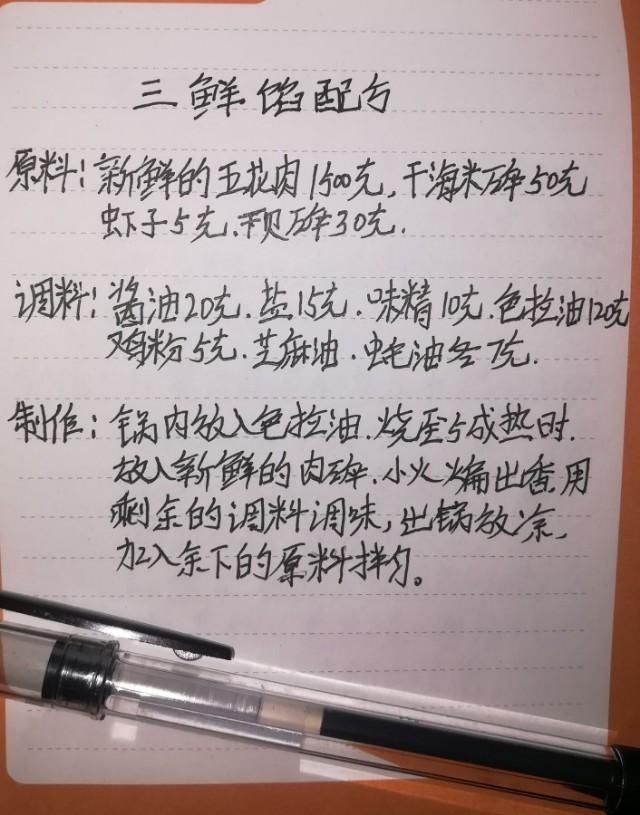 三鲜馅配方
原料：新鲜的五花肉1500克，干海米碎50克
虾子5克、干贝碎30克.
调料：酱油20克、盐15克、味精10克、色拉油120克
鸡粉5克、芝麻油、蚝油各7克.
制作：锅内放入色拉油.烧至5成热时.
放入新鲜的肉碎.小火煸出香.用
剩余的调料调味，出锅放凉，
加入余下的原料拌匀。